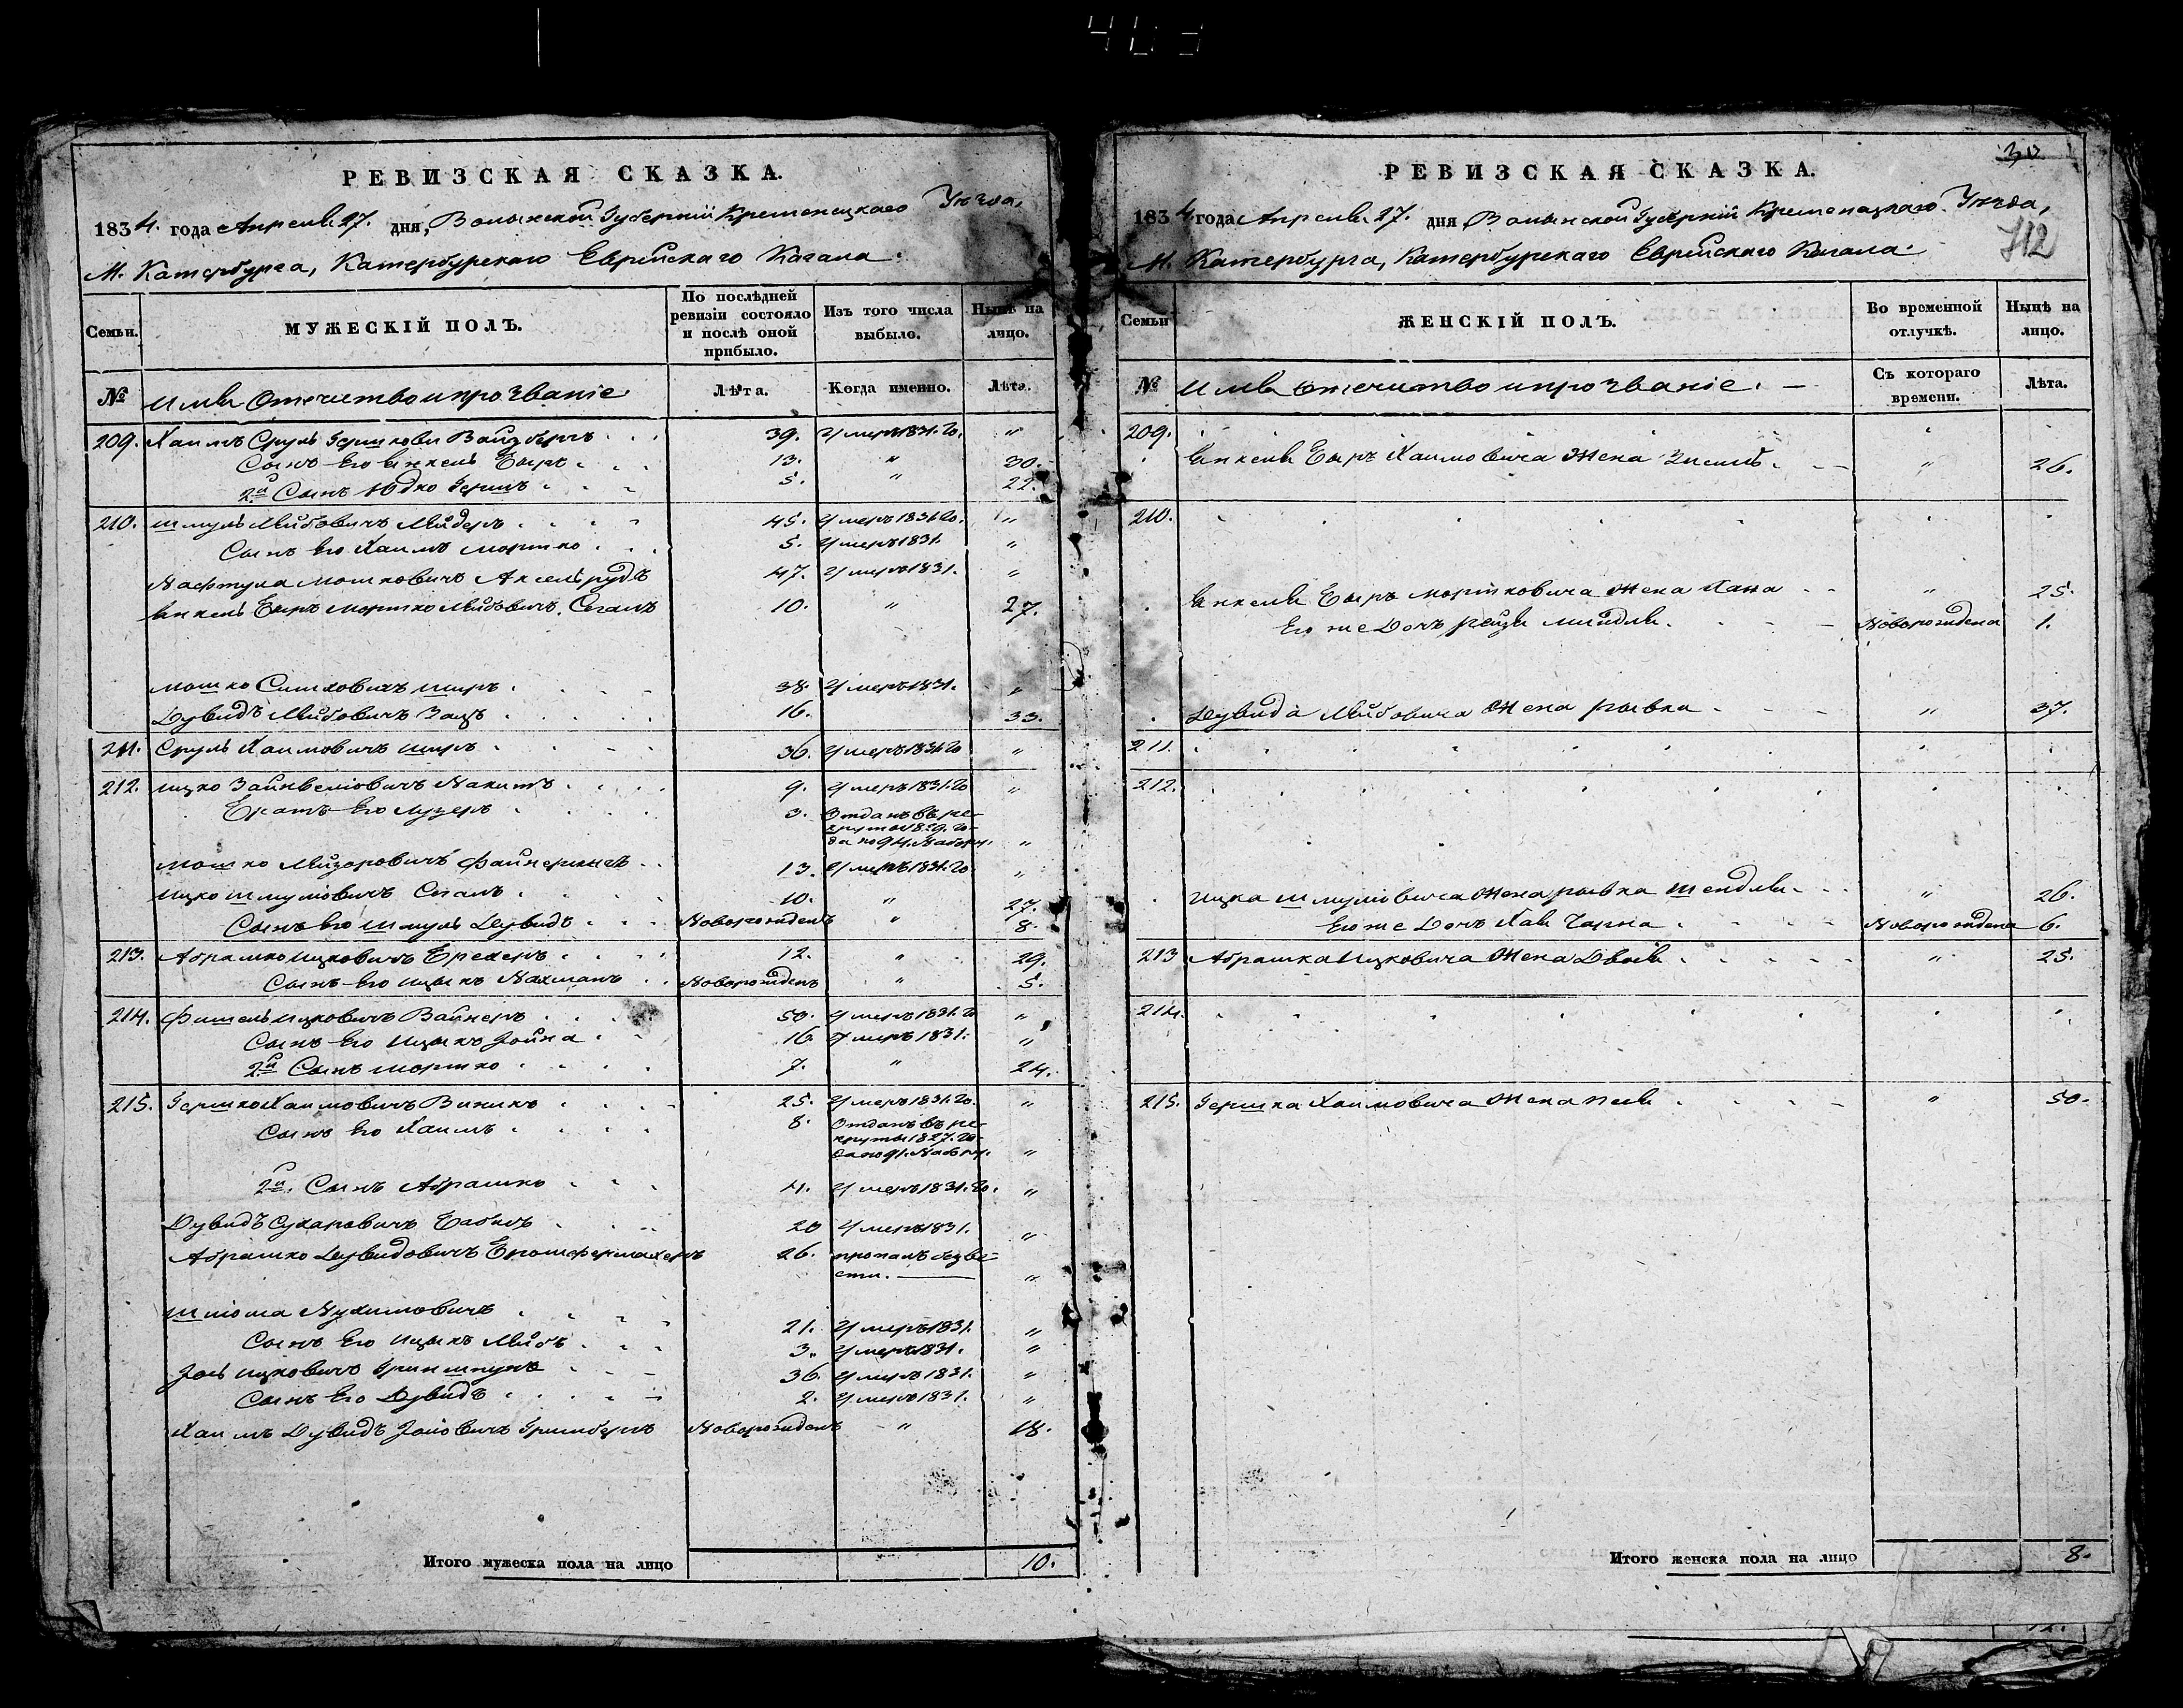 РЕВИЗСКАЯ СКАЗКА.
1834. года Апреля 27. дня, Волынской Губернии Кременецкаго Уезда,
М. Катербурга, Катербурскаго Еврейскаго Кагала.
Семьи.
МУЖЕСКІЙ ПОЛЪ.
По послѣдней ревизіи состояло и послѣ оной прибыло.
Изъ того числа выбыло.
Нынѣ на лицо.
№ Имя Отечество и прозваніе Лѣта. Когда именно. Лѣта.
209. Хаимъ Сруль Гершкови Вайзбергъ 39. Умеръ 1831. го. "
Сынъ Его Янкель Беръ 13. " 30.
2й Сынъ Юдко Гершъ 5. " 22.
210. Шмуль Лейбовичъ 45. Умеръ 1831 го. "
Сынъ Его Хаимъ Мортко 5. Умеръ 1831. "
Нафтула Мошковичъ Аксельрудъ 47. Умеръ 1831. "
Янкель Беръ Мортко Лейбовичъ Сегалъ 10. " 27.
Мошко 38. Умеръ 1831. "
Дувидъ Лейбовичъ Зацъ 16. 33.
211. Сруль Хаимовичъ 36. Умеръ 1831 го "
212. Ицко Зайнвеліовичъ 9. Умеръ 1831. го "
Братъ Его Лузеръ 3. Отданъ въ ре-
круты 1829. го-
да по 94. Набору. "
Мошко Лейзоровичъ 13. Умеръ 1831. го "
Ицко Шмуліовичъ Сегалъ 10. " 27.
Сынъ Его Шмуль Дувидъ Новорожденъ " 8.
213. Абрашко Ицковичъ Брехеръ 12. " 29.
Сынъ Его Ицыкъ Нахманъ Новорожденъ " 5.
214. Фишель Ицковичъ Вайнеръ 50. Умеръ 1831. го "
Сынъ Его Ицыкъ Іойна 16. Умеръ 1831. "
2й Сынъ Мортко 7. " 24.
215. Гершко Хаимовичъ Виникъ 25. Умеръ 1831. го. "
Сынъ Его Хаимъ 8. Отданъ въ ре-
круты 1827. го-
да по 91. Набору. "
2й. Сынъ Абрашко 4. Умеръ 1831. го. "
Дувидъ Сухаровичъ 20 Умеръ 1831. "
Абрашко Дувидовичъ 26. пропалъ безве-
сти. "
Шліома Нухимовичъ 21. Умеръ 1831. "
Сынъ Его Ицыкъ Лейбъ 3. Умеръ 1831. "
Ицковичъ Гриншпунъ 36. Умеръ 1831. "
Сынъ Его Дувидъ 2. Умеръ 1831. "
Хаимъ Дувидъ Гринбергъ Новорожденъ " 18.
Итого мужеска пола на лицо 10.
РЕВИЗСКАЯ СКАЗКА.
1834 года Апреля 27. дня Волынской Губерніи Кременецкаго Уезда,
М. Катербурга, Катербурскаго Еврейскаго Кагала.
712
Семьи
ЖЕНСКІЙ ПОЛЪ.
Во временной отлучкѣ.
Нынѣ на лицо.
№ Имя отечество и прозваніе. Съ котораго времени. Лѣта.
209.
Янкеля Беръ Хаимовича Жена " 26.
210.
Янкеля Беръ Мортковича Жена Хана " 25.
Его же Дочь Рейзя Миндля. Новорождена 1.
Дувида Лейбовича Жена Рывка " 37.
211.
212.
Ицка Шмуліовича Жена Рывка Шендля " 26.
Его же Дочь Хая Новорождена 6.
213 Абрашка Ицковича Жена Двося " 25.
214.
215. Гершка Хаимовича Жена Песя " 50.
Итого женска пола на лицо 8.